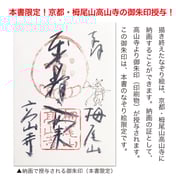 本書限定!京都・栂尾山高山寺の御朱印授与!
描き終えたなぞり絵は、京都・栂尾山高山寺に
納画することができます。納画の証として、
高山寺より御朱印(印刷物)が授与されます。
この御朱印は、本書のなぞり絵限定です。
奉拝
栂尾山
高山寺
▲納画で授与される御朱印(本書限定)